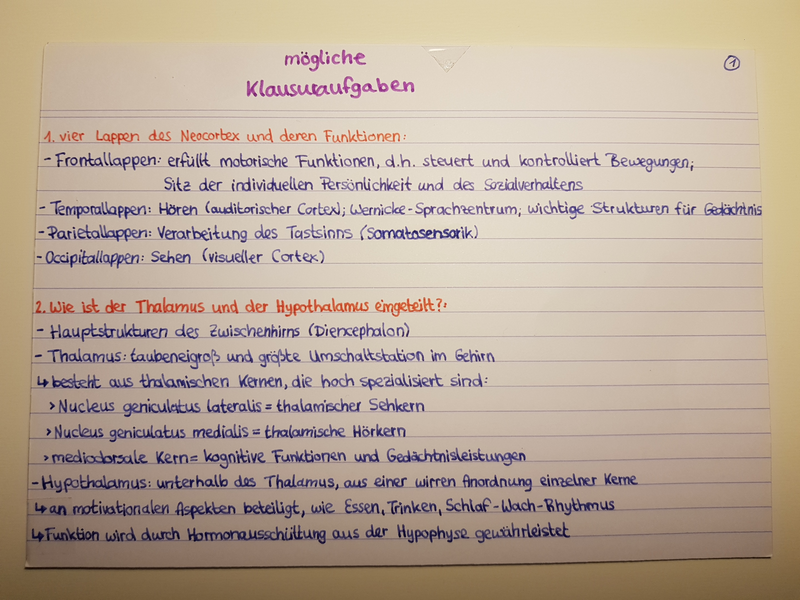 mögliche
Klausuraufgaben
1
1. vier Lappen des Neocortex und deren Funktionen:
- Frontallappen: erfüllt motorische Funktionen, d.h. steuert und kontrolliert Bewegungen;
Sitz der individuellen Persönlichkeit und des Sozialverhaltens
- Temporallappen: Hören (auditorischer Cortex); Wernicke-Sprachzentrum; wichtige Strukturen für Gedächtnis
- Parietallappen: Verarbeitung des Tastsinns (Somatosensorik)
- Occipitallappen: Sehen (visueller Cortex)
2. Wie ist der Thalamus und der Hypothalamus eingeteilt?:
- Hauptstrukturen des Zwischenhirns (Diencephalon)
- Thalamus: taubeneigroß und größte Umschaltstation im Gehirn
↳ besteht aus thalamischen Kernen, die hoch spezialisiert sind:
> Nucleus geniculatus lateralis = thalamischer Sehkern
> Nucleus geniculatus medialis = thalamische Hörkern
> mediodorsale Kern = kognitive Funktionen und Gedächtnisleistungen
- Hypothalamus: unterhalb des Thalamus, aus einer wirren Anordnung einzelner Kerne
↳ an motivationalen Aspekten beteiligt, wie Essen, Trinken, Schlaf-Wach-Rhythmus
↳ Funktion wird durch Hormonausschüttung aus der Hypophyse gewährleistet